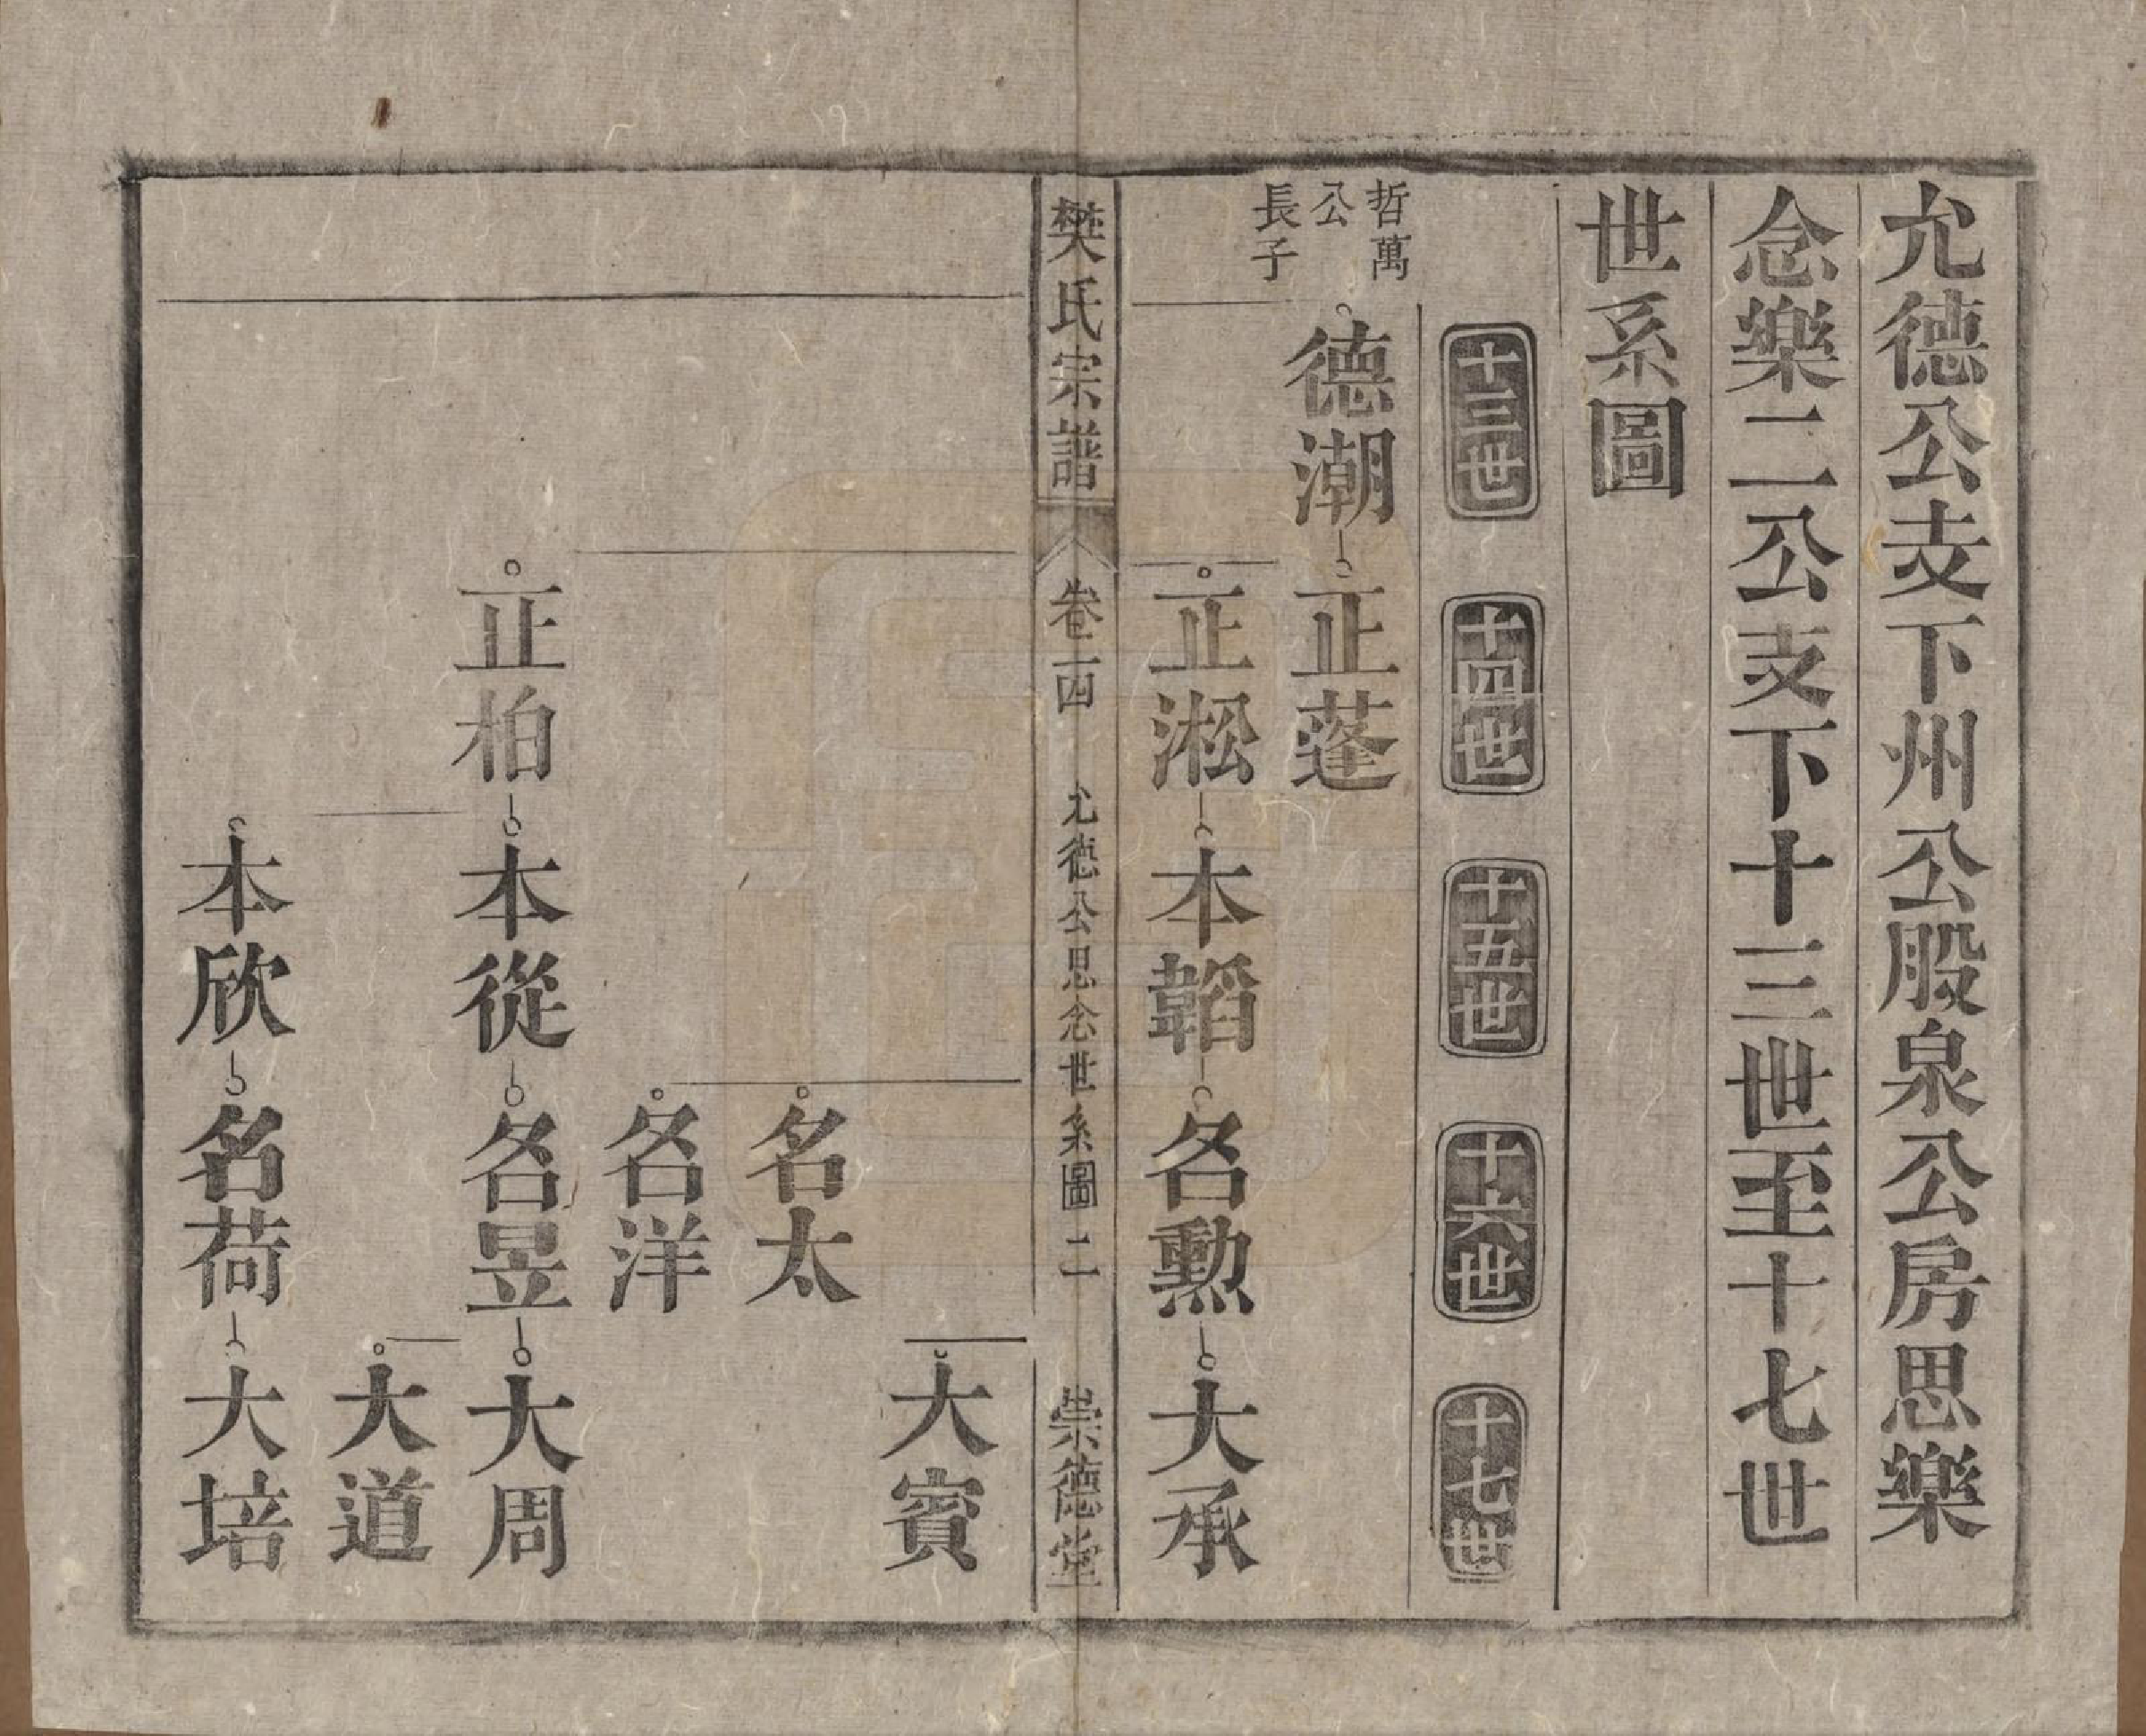 允德公支下州公股泉公房思樂
念樂二公支下十三世至十七世
世系圖
十三世
十四世
十五世
十六世
十七世
哲萬
公
長子
德潮
正蓬
正淞
本韜
名勲
大承
樊氏宗譜
卷一四
允德公思念世系圖
二
崇德堂
大賓
名太
名洋
正柏
本從
名昱
大周
大道
本欣
名荷
大培